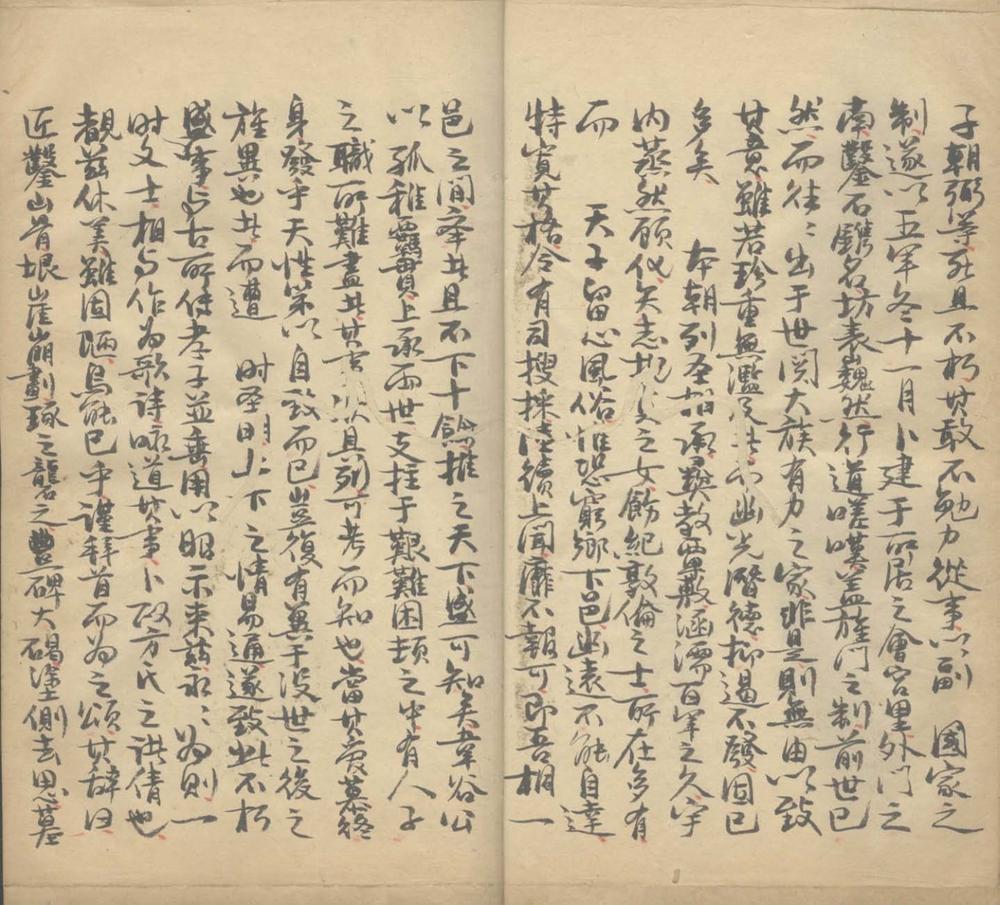 子朝弼等死且不朽其敢不勉力從事以副　國家之
制遂以五年冬十一月卜建于所居之會宮里外門之
南鑿石鐫名坊表巍然行道嗟嘆蓋旌門之制前世已
然而往〻出于世閥大族有力之家非是則無由以致
其意雖若珍重無濫 幽光潛德抑遏不發固已
多矣　本朝列聖相承 教 敷涵濡百年之久宇
內蒸然顧化矢志 之女飭紀敦倫之士所在多有
而　天子留心風俗惟恐窮鄉下邑幽遠不能自達
特寬其格令有司搜採陸續上聞靡不報可即吾桐一
邑之間率 且不下十餘推之天下盛可知矣韋谷公
以孤稚 上承兩世支拄于艱難困頓之中有人子
之職所難盡 其 具列可考而知也當其 慕
身發乎天性第以自致而已豈復有冀于沒世之後之
旌異也 而遭　時聖明上下之情易通遂致此不朽
盛事與古所傳孝子並垂用以昭示來茲永〻為則一
時文士相與作為歌詩咏道其事卜 方氏之 倩也
覩茲休美雖固陋烏能已乎謹拜首而為之頌其辭曰
匠鑿山骨垠崖崩劃琢之礱之豐碑大碣塗側去思墓